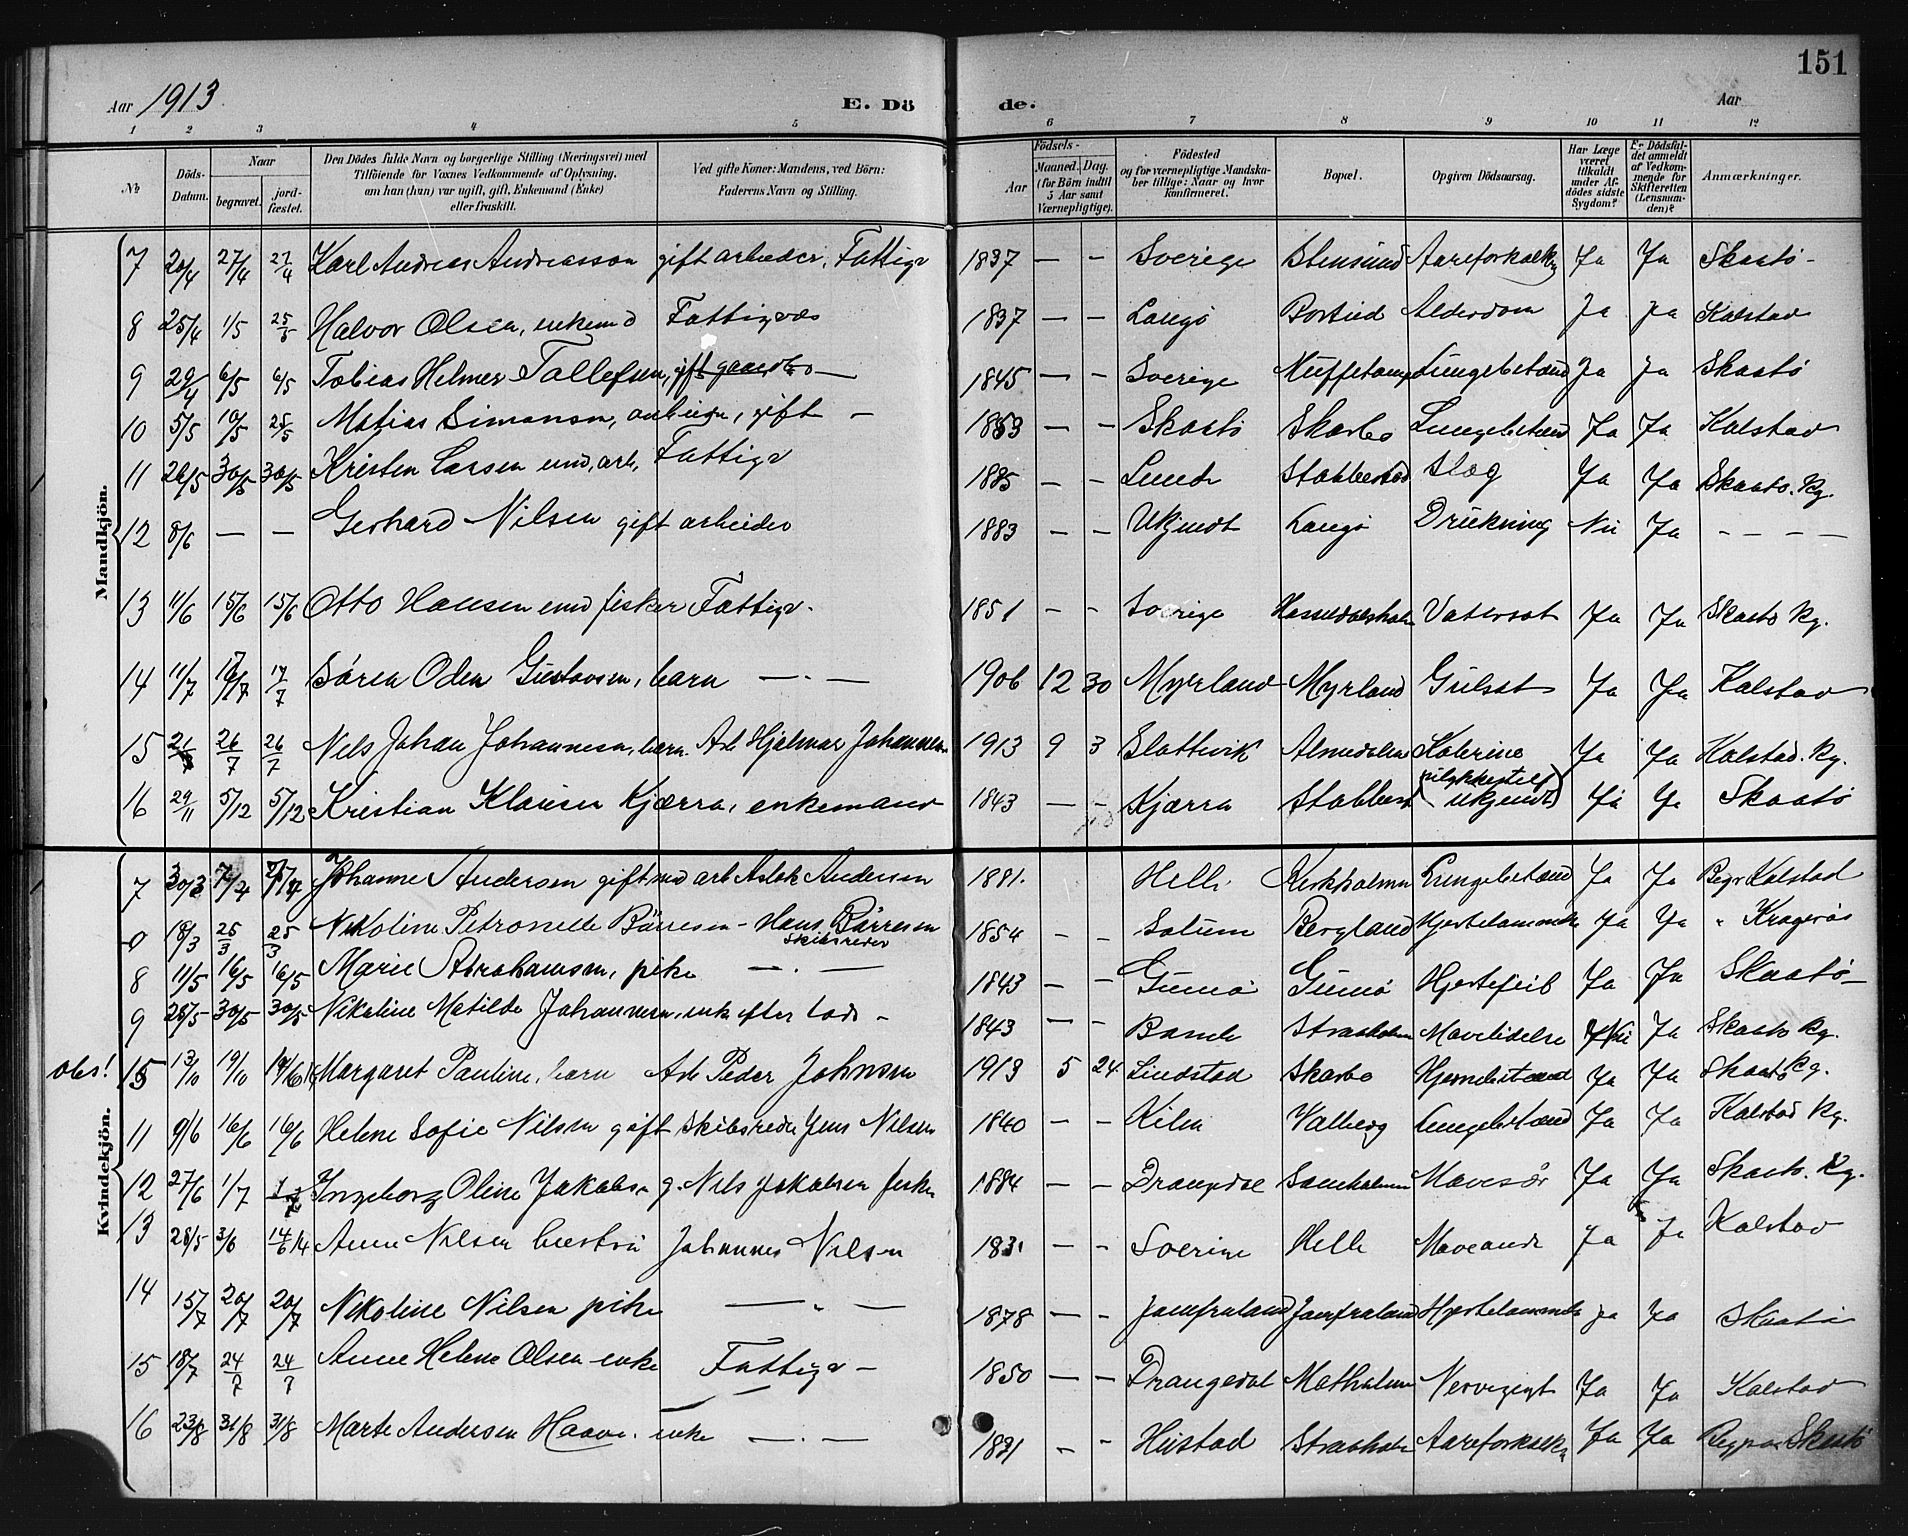 151
Aar 1913 E. Dö de. Aar
1 2 3 4 5 6 7 8 9 10 11 12
No Döds-Datum. Naar begravet. jord-fæstet. Den Dödes fulde Navn og borgerlige Stilling (Næringsvei) med Tilföiende for Voxnes Vedkommende af Oplysning, om han (hun) var ugift, gift, Enkemand (Enke) eller fraskilt. Ved gifte Koner: Mandens, ved Börn: Faderens Navn og Stilling. Födsels- Aar Maaned. Dag. (for Börn indtil 5 Aar samt Værnepligtige). Födested og for værnepligtige Mandska-ber tillige: Naar og hvor konfirmeret. Bopæl. Opgiven Dödsaarsag. Har Læge været tilkaldt under Af-dödes sidste Sygdom? Er Dödsfal-det anmeldt af Vedkom-mende for Skifteretten (Lensman-den)? Anmærkninger.
Mandkjön.
7 20/4 27/4 27/4 Karl Andreas Andreasson gift arbeider, Fattigv 1837 — — Sverige Stensund Aareforkalkn Ja Ja Skaatø -
8 25/4 1/5 25/5 Halvor Olsen, enkemd Fattigvæs 1837 — — Langø Portind Alderdom Ja Ja Kalstad
9 29/4 6/5 6/5 Tobias Helmer Tallefsen, gift gaardbr — 1845 — — Sverige Lungebetænd Ja Ja Skaatø
10 5/5 10/5 25/5 Matias Simonsen, arbeider, gift — 1863 — — Skaatø Skarbo Lungebetænd Ja Ja Kalstad
11 26/5 30/5 30/5 Kristen Larsen emd, arb, Fattigv 1885 — — Lunde Stabbestad Slag Ja Ja Skaatø. Kg.
12 8/6 — — Gerhard Nilsen gift arbeider 1883 — — Ukjendt Langø Drukning Nei Ja — — — —
13 11/6 15/6 15/6 Otto Hansen emd fisker Fattigv. 1851 — — Sverige Hasseldalsholm Vatersot Ja Ja Skaatø Kg.
14 11/7 17/7 17/7 Søren Oden Gustavsen, barn — . — 1906 12 30 Myrland Myrland Gulsot Ja Ja Kalstad
15 21/7 26/7 26/7 Nils Johan Johannesen, barn Arb Hjalmar Johannesen 1913 9 3 Slottvik Ja Ja Kalstad. Kg.
16 29/11 5/12 5/12 Kristian Klausen Kjærra, enkemand 1843 — — Kjærra Stabbest (ukjendt) Ja Ja Skaatø
Kvindekjön.
7 30/3 7/4 Johanne Andersen gift med arb Aslak Andersen 1881. Helle Kirkholmen Lungebetænd Ja Ja Begr Kalstad
18/3 25/3 25/3 Nikoline Petronelle Børresen - Hans Børresen
Skibsreder
1854 — — Solum Bergland Hjertelammelse Ja Ja " Kragerøs
8 11/5 16/5 16/5 Marie Abrahamsen, pike — . — 1843 — — Gumø Gumø Hjertefeil Ja Ja Skaatø —
9 25/5 30/5 30/5 Nikoline Matilde Johannesen, enke efter lods - 1843 — — Bamle Straaholmen Mavelidelse Nei Ja Skaatø Kg.
obs! 15 13/10 19/10 Margaret Pauline, barn Arb Peder Johnsen 1913 5 24 Lindstad Skarbo Hjernebetænd Ja Ja Skaatø Kg.
11 9/6 16/6 16/6 Helene Sofie Nilsen gift Skibsreder Jens Nilsen 1840 — — Kilen Valberg Lungebetænd Ja Ja Kalstad Kg.
12 27/6 1/7 Ingeborg Oline Jakobsen g. Nils Jakobsen fisker 1884 — — Drangedal Mavesår Ja Ja Skaatø. Kg.
13 28/5 3/6 14/6 14 Anne Nilsen hustru Johannes Nilsen 1831 — — Sverige Helle Maveonde Ja Ja Kalstad
14 15/7 20/7 20/7 Nikoline Nilsen pike — " — 1878 — — Jomfruland Jomfruland Hjertelammelse Ja Ja Skaatø
15 18/7 24/7 24/7 Anne Helene Olsen enke Fattigv — 1850 — — Drangedal Matholmen Nervegigt Ja Ja Kalstad
16 23/8 31/8 31/8 Marte Andersen Haave. enke — . — 1821 — — Hustad Straaholm Aareforkalkn Ja Ja Begr paa Skaatø